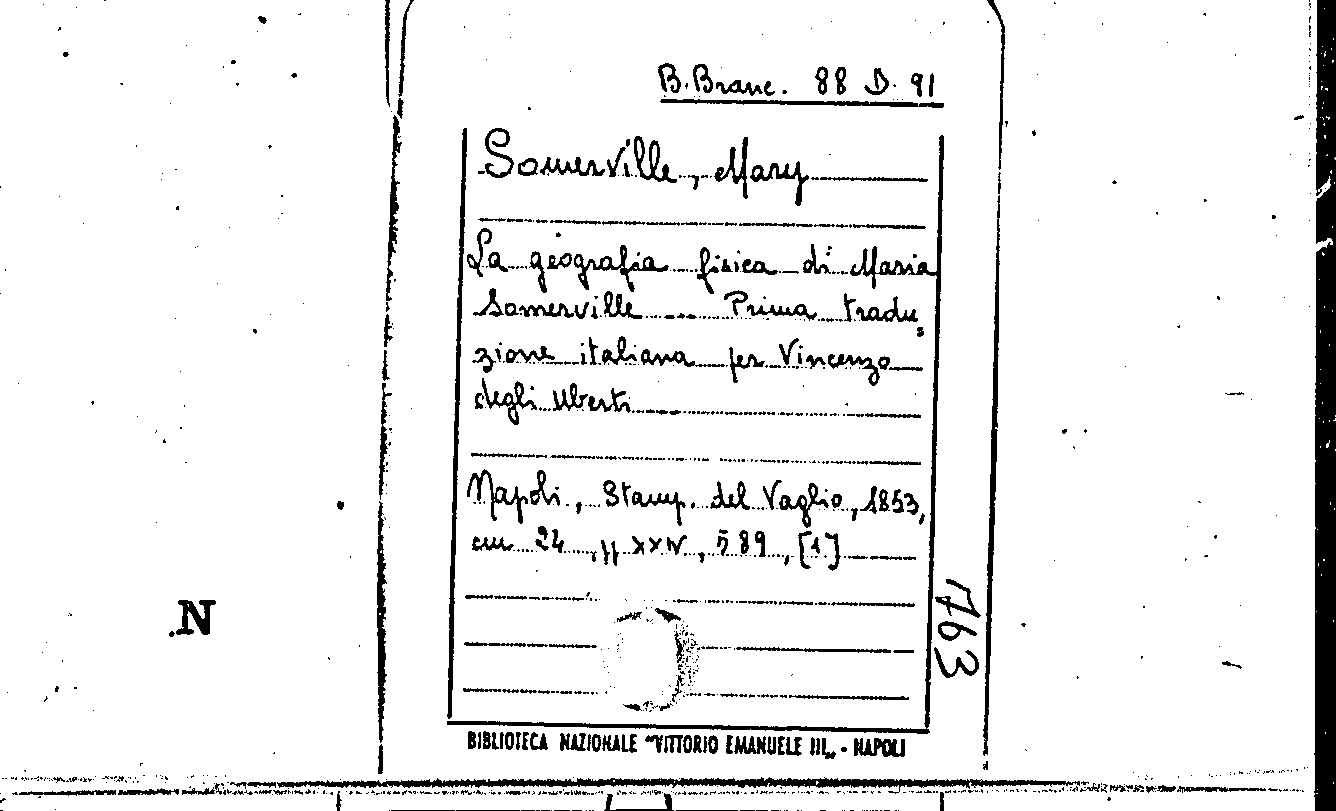 B. Branc. 88 D. 91
Somerville, Mary
La geografia fisica di Maria
Somerville ... Prima tradu,
zione italiana per Vincenzo
degli Uberti
Napoli, Stamp. del Vaglio, 1853,
cm 24, pp XXIV, 589, [1]
1763
N
BIBLIOTECA NAZIONALE "VITTORIO EMANUELE III„ - NAPOLI